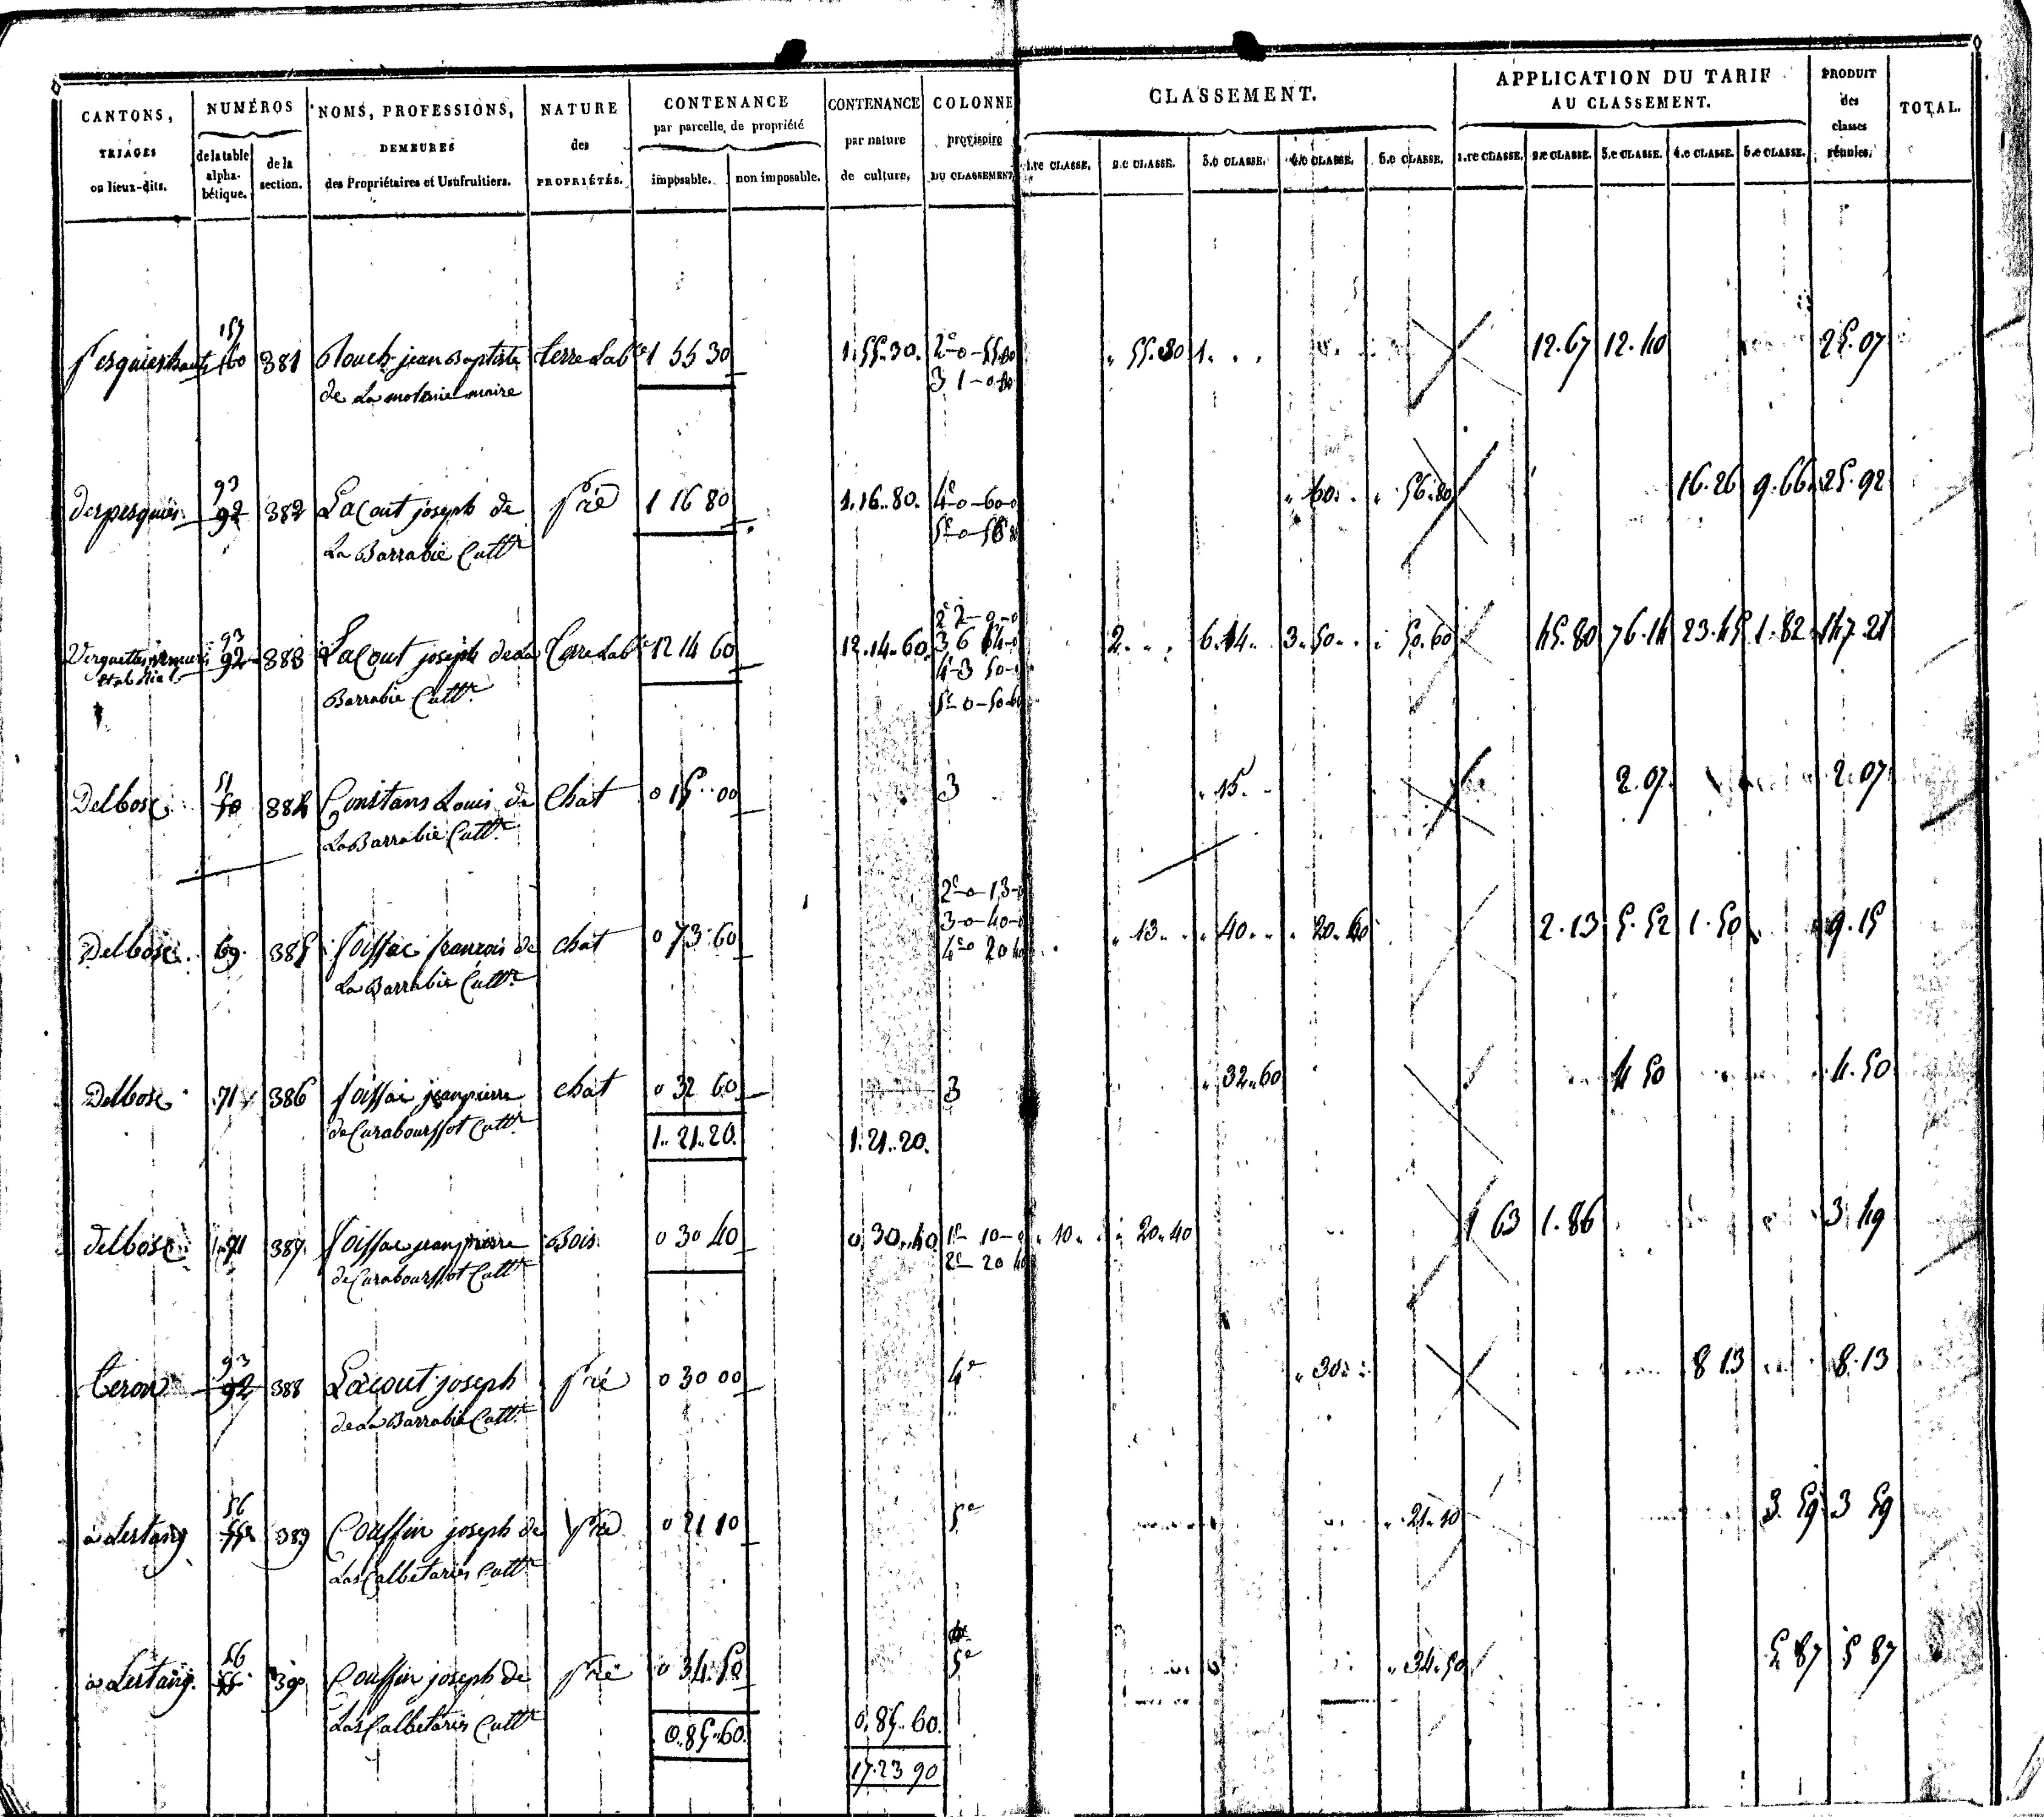 CANTONS, TRIAGES ou lieux-dits.
NUMÉROS
de la table alphabétique.
de la section.
NOMS, PROFESSIONS, DEMEURES des Propriétaires et Usufruitiers.
NATURE des PROPRIÉTÉS.
CONTENANCE par parcelle, de propriété
imposable.
non imposable.
CONTENANCE par nature de culture,
COLONNE provisoire DU CLASSEMENT
CLASSEMENT.
1.re CLASSE. 2.e CLASSE. 3.e CLASSE. 4.e CLASSE. 5.e CLASSE.
APPLICATION DU TARIF AU CLASSEMENT.
1.re CLASSE. 2.e CLASSE. 3.e CLASSE. 4.e CLASSE. 5.e CLASSE.
PRODUIT des classes réunies.
TOTAL.
153
160 381 jean Baptiste terre Labe 1 55 30 1.55.30. 2e 0-55 1. . . 12.67 12.40 25.07
de La maire 3 1-0
93
92 382 Lacout joseph de Pré 1 16 80 1.16..80. 4e 0-60-0 60. . 56.80 16.26 9.66 25.92
La Barrabie Cultr 5e 0-56
2e 2-0-0
93
92 383 Lacout joseph de La Terre Labe 12 14 60 12.14.60. 3 6 14-0 2. . . 6.14. 3.50. . 50.60 45.80 76.14 23.45 1.82 147.21
Barrabie Cultr 4e 3 50-
5e 0-50-60
51
Delbosc 50 384 Constans Louis de Chat 0 15 00 3 15. 2.07. 2.07
La Barrabie Cultr
2e 0-13-0
Delbosc. 69. 385 foissac francois de chat 0 73 60 3-0-40-0 13. . 40. . 20.60 2.13 5.52 1.50 9.15
La Barrabie Cultr 4e 0 20
Delbosc 71 386 foissac jean pierre chat 0 32 60 3 32.60 4 50 4.50
de Curabourssot Cultr
1. 21..20. 1.21..20.
delbosc 71 387. foissac jean pierre Bois 0 30 40 0.30.40. 1e 10-0 10. . 20.40 1 63 1.86 3.49
de Curabourssot Cultr 2e 20 40
93
teron 92 388 Lacout joseph Pré 0 30 00 4e 30. . 8 13 8.13
de La Barrabie Cultr
56
a Lestang 55 389 Couffin joseph de Pré 0 21 10 5e 21.10 3. 59 3 59
Las Calbetaries Cultr
56
a Lestang. 55 390 Couffin joseph de Pré 0 34.50 5e 34.50 5 87 5 87
Las Calbetaries Cultr
0.85..60. 0.85..60.
17.23 90